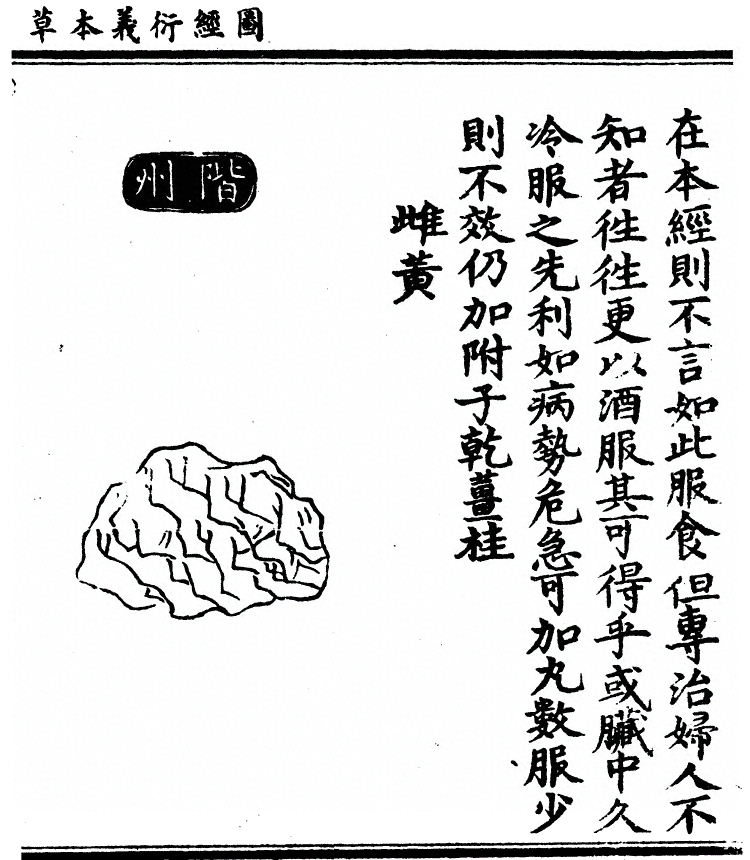 圖經衍義本草
在本經則不言如此服食但專治婦人不
知者徃徃更以酒服其可得乎或臟中久
冷服之先利如病勢危急可加丸數服少
則不效仍加附子乾薑桂
雌黃
階州